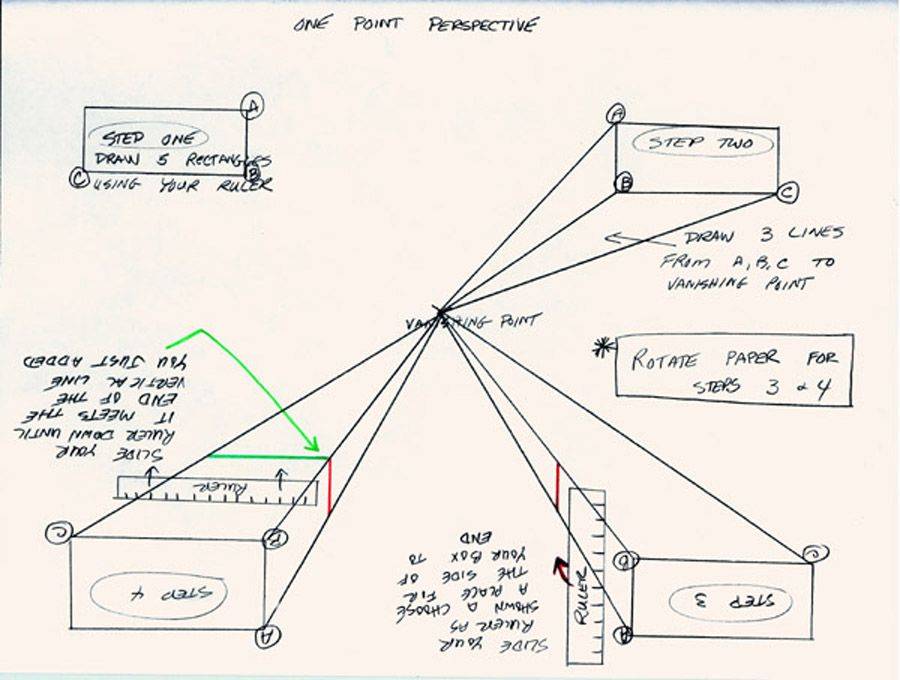 ONE POINT PERSPECTIVE
A
STEP ONE
DRAW 5 RECTANGLES
C
B
USING YOUR RULER
A
STEP TWO
B
C
DRAW 3 LINES
FROM A, B, C TO
VANISHING POINT
VANISHING POINT
* ROTATE PAPER FOR
STEPS 3 & 4
SLIDE YOUR
RULER AS
SHOWN & CHOOSE
A PLACE FIR
THE SIDE OF
YOUR BOX TO
END
RULER
STEP 3
B
C
SLIDE YOUR
RULER DOWN UNTIL
IT MEETS THE
END OF THE
VERTICAL LINE
YOU JUST ADDED
RULER
STEP 4
A
B
C